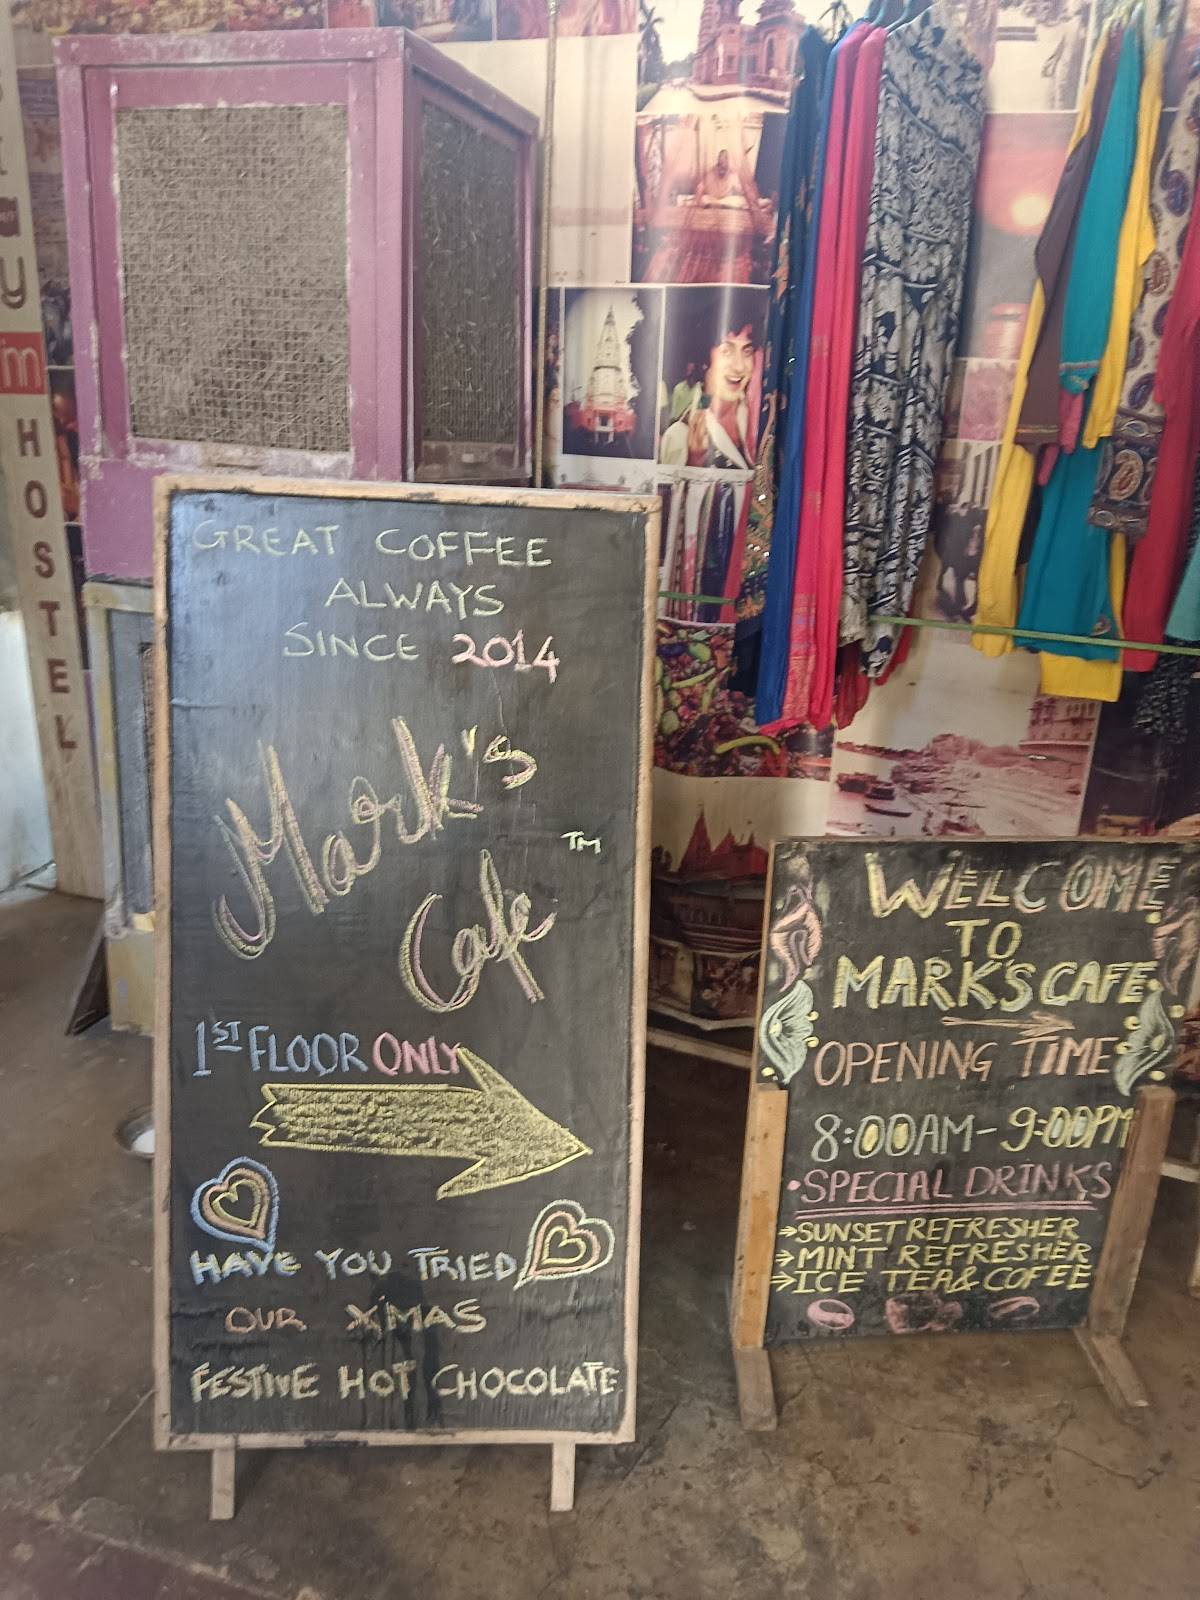 GREAT COFFEE
ALWAYS
SINCE 2014
Mark's
Cafe ™
1ST FLOOR ONLY
HAVE YOU TRIED
OUR X'MAS
FESTIVE HOT CHOCOLATE
WELCOME
TO
MARK'S CAFE
OPENING TIME
8:00AM - 9:00PM
• SPECIAL DRINKS
→SUNSET REFRESHER
→MINT REFRESHER
→ICE TEA & COFEE
HOSTEL